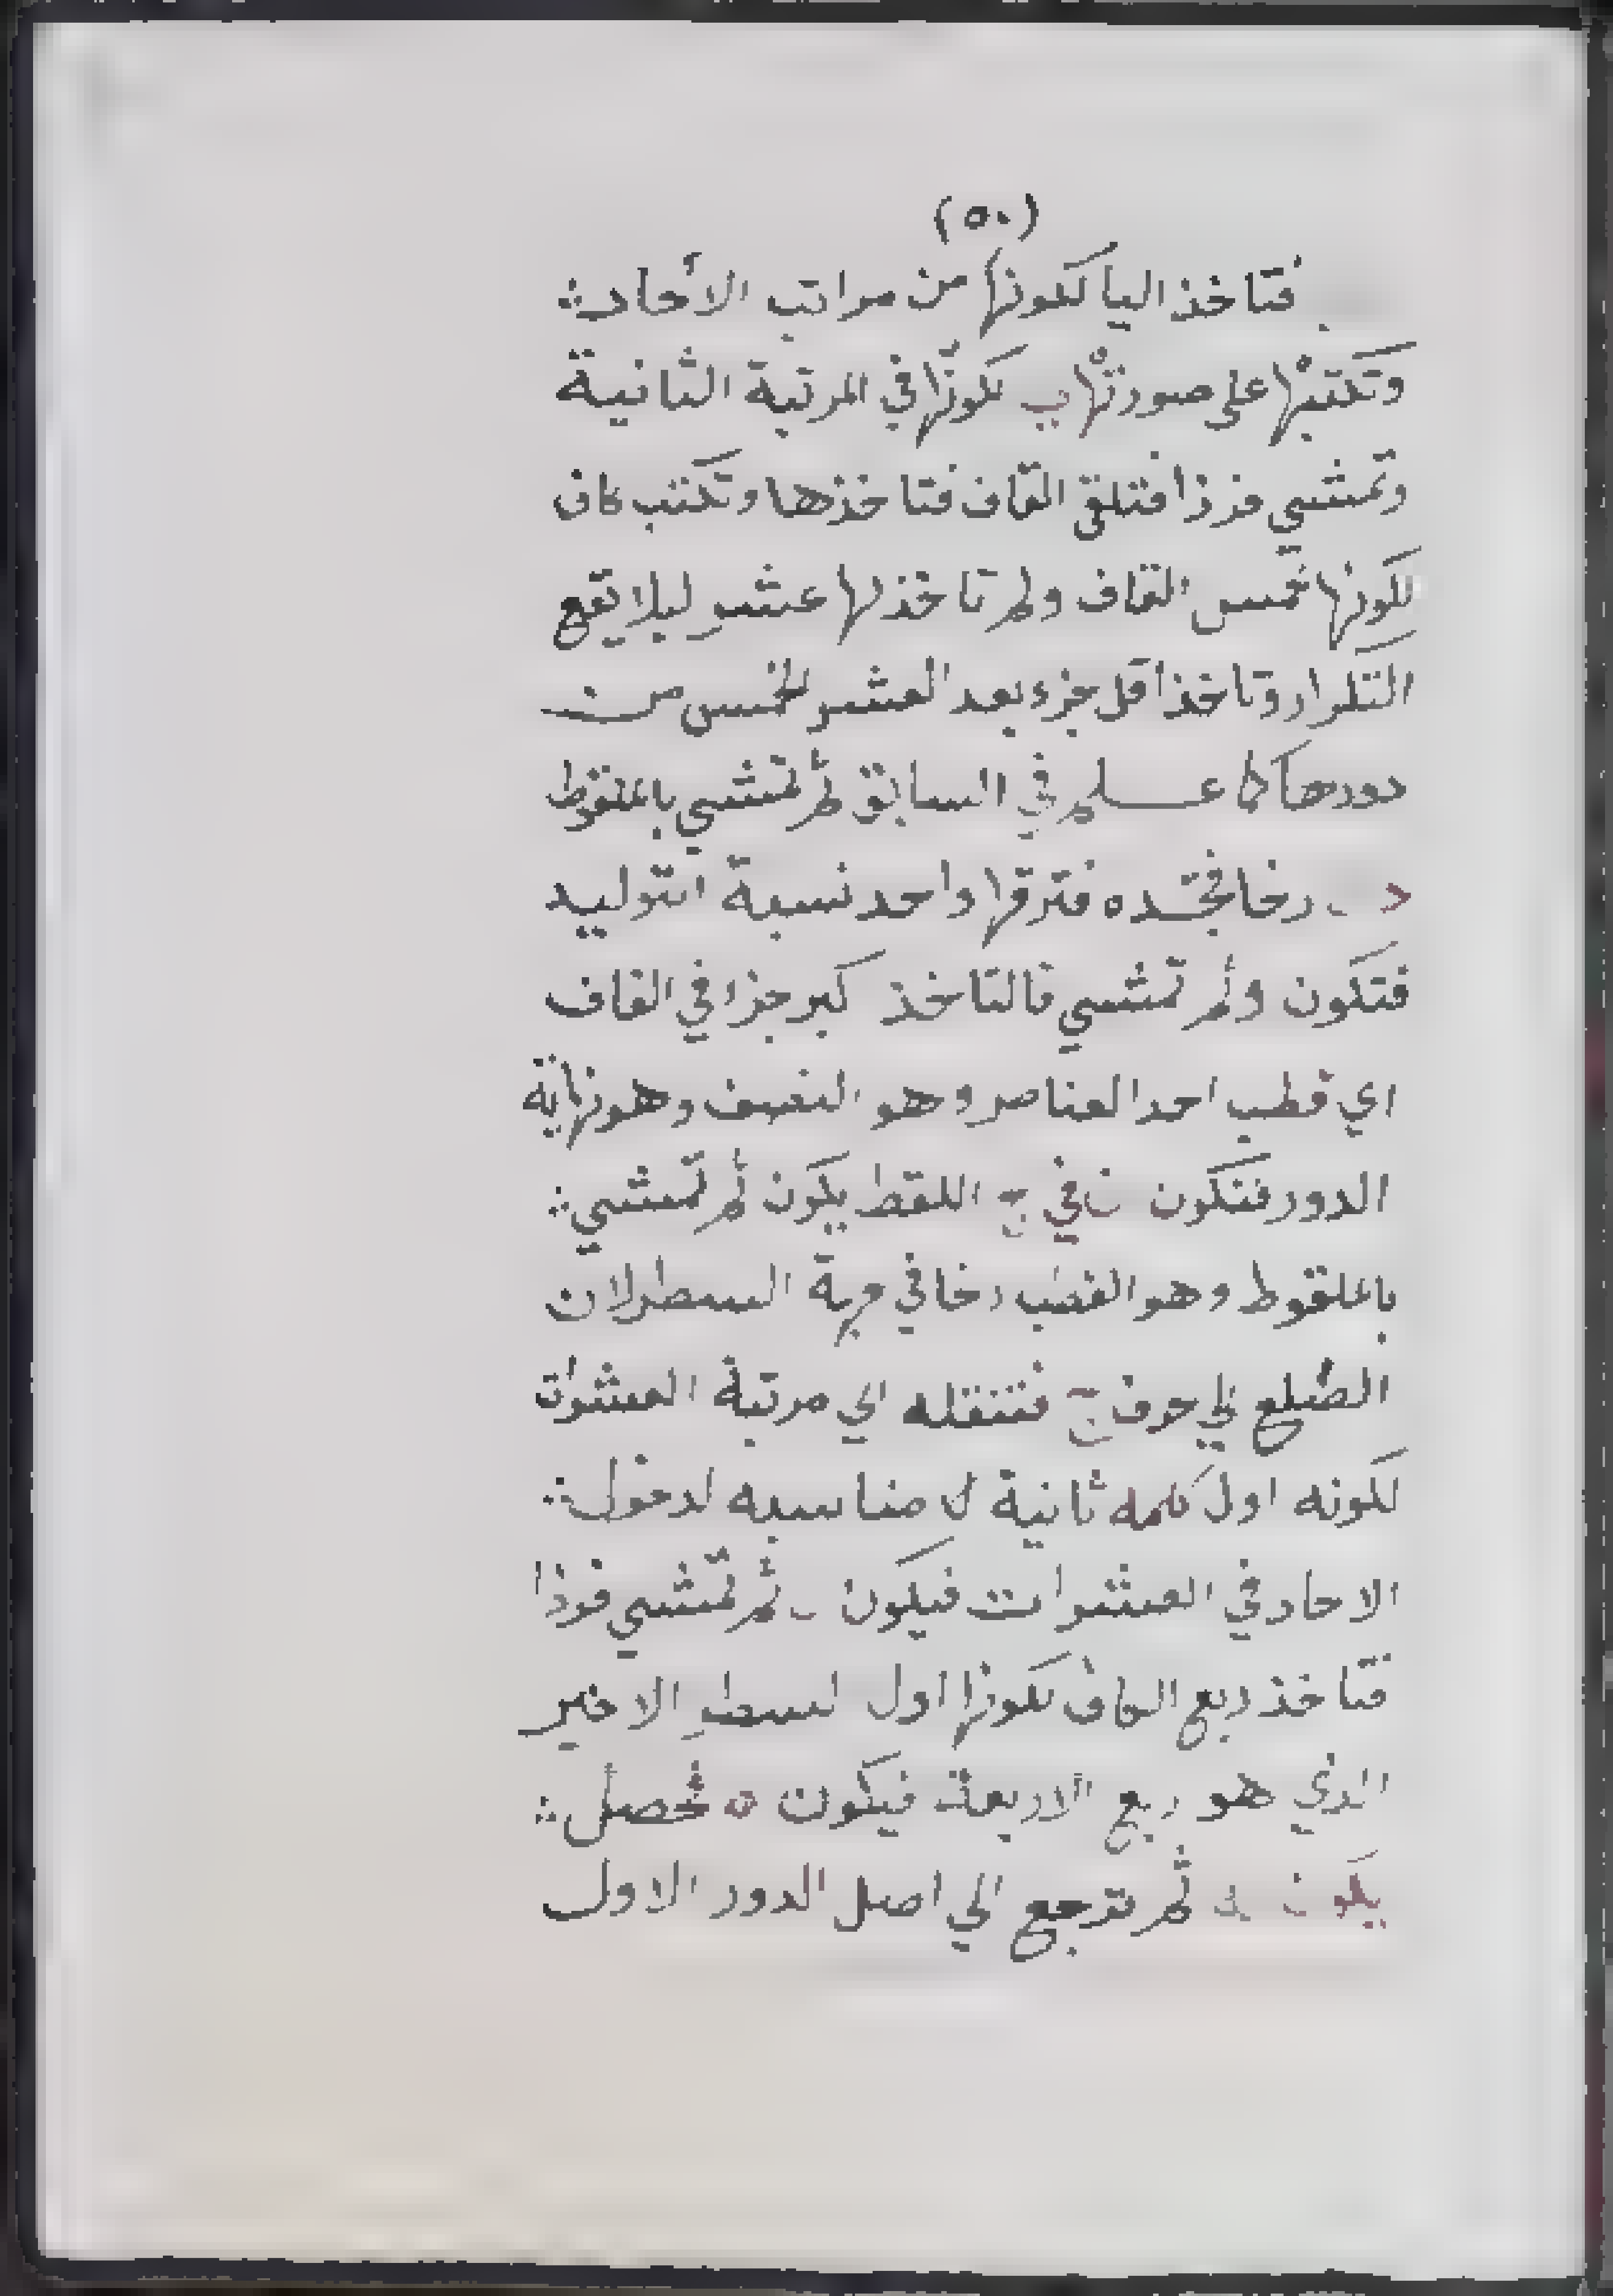 (٥٠)
فتاخذ اليا لكونها من مراتب الأحاد
وتكتبها على صورتها ب لكونها في المرتبة الثانية
وتمشي فرذا فتلق القاف فتاخذها وتكتب كاف
لكونها خمس القاف ولم تاخذ لها عشر ليلا يقع
التكرار وتاخذ أقل جزء بعد العشر الخمس من
دورها كما علم في السابق ثم تمشي بالملقوط
د رخا فتجده فترقها واحد نسبة التوليد
فتكون و ثم تمشي تاخذ كبر جزء في القاف
اي قطب احد العناصر وهو النصف وهو نهاية
الدور فتكون ن في ج اللقط يكون ثم تمشي
بالملقوط وهو القصب رخا في السطر لان
الضلع الي حرف ج فتنقله الي مرتبة العشرات
لكونه اول كلمه ثانية لا مناسبه لدخول
الاحاد في العشرات فيكون ثم تمشي فرذا
فتاخذ ربع الكاف لكونها اول لسطر الاخير
الذي هو ربع الاربعة فيكون ه تحصل
يكون ثم ترجع الي اصل الدور الاول